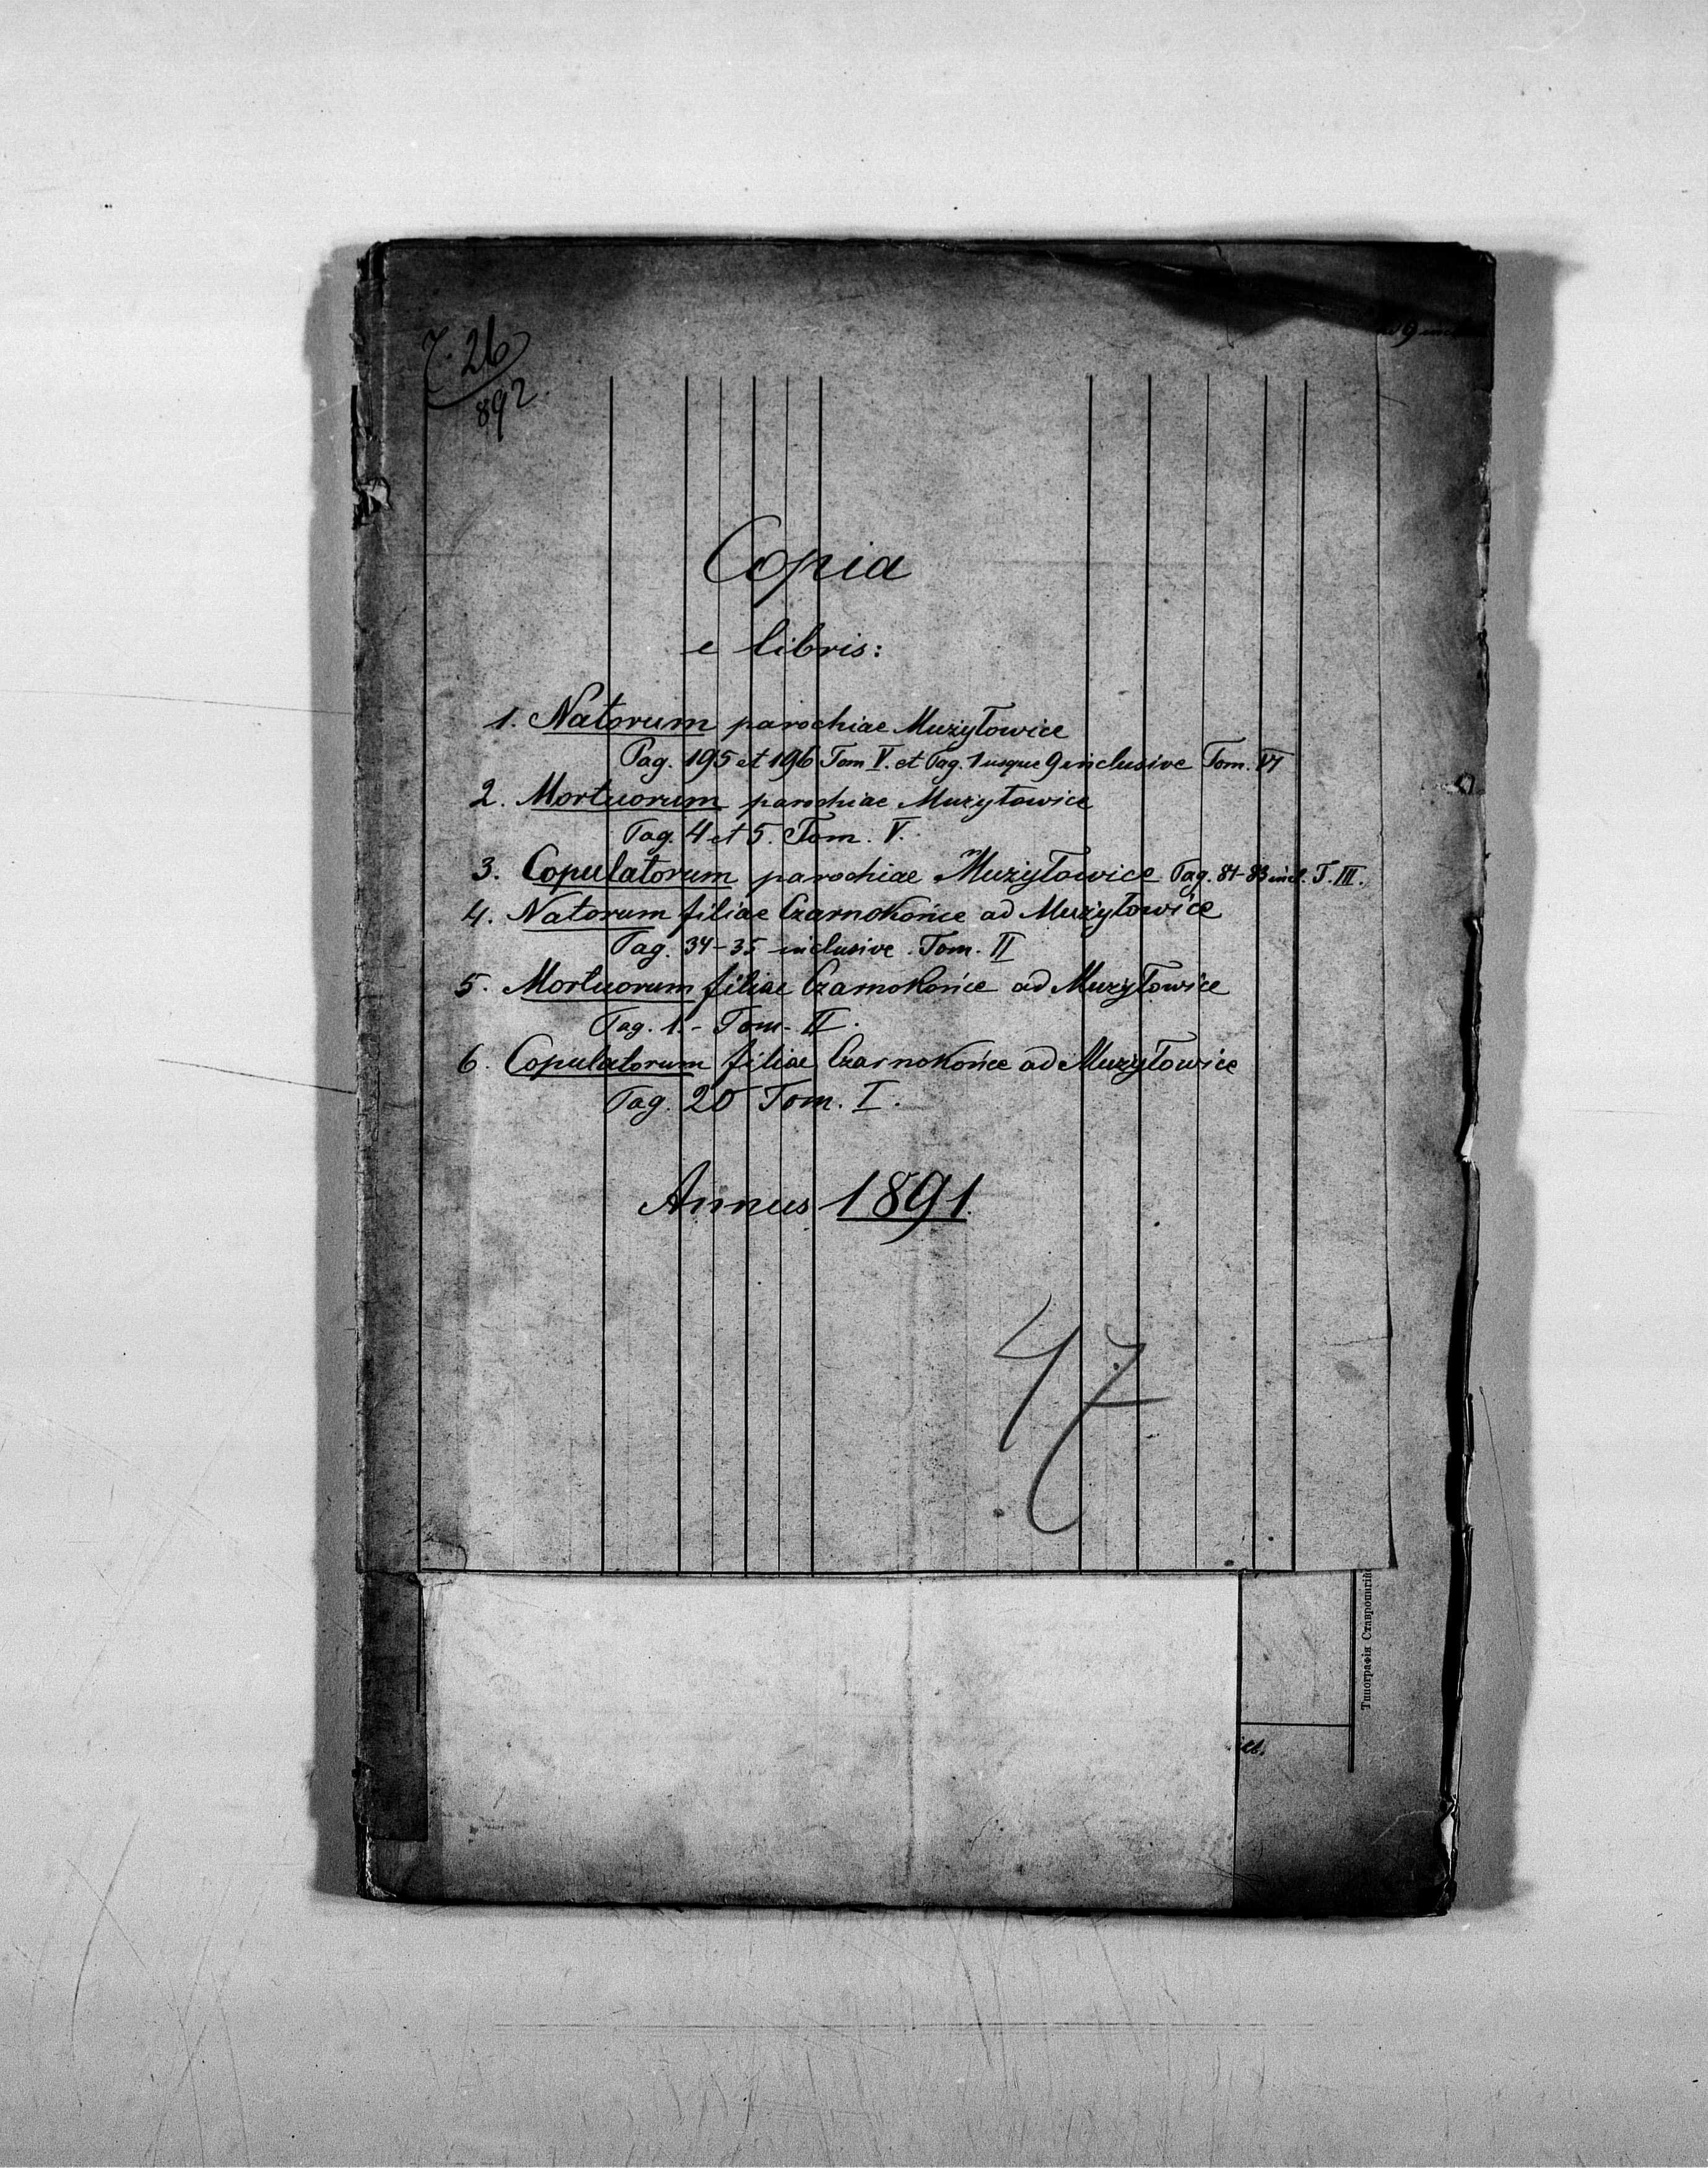 26
892.
Copia
e libris:
1. Natorum parochiae Mużyłowice
Pag. 195 et 196 Tom V. et Pag. 1 usque 9 inclusive Tom. VI
2. Mortuorum parochiae Mużyłowice
Pag. 4 et 5. Tom. V.
3. Copulatorum parochiae Mużyłowice Pag. 81-83 incl. T. III.
4. Natorum filiae Czarnokońce ad Mużyłowice
Pag. 34-35 inclusive. Tom. II
5. Mortuorum filiae Czarnokońce ad Mużyłowice
Pag. 1.- Tom- II.
6. Copulatorum filiae Czarnokońce ad Mużyłowice
Pag. 20 Tom. I.
Annus 1891.
47
Типографія Ставропигій